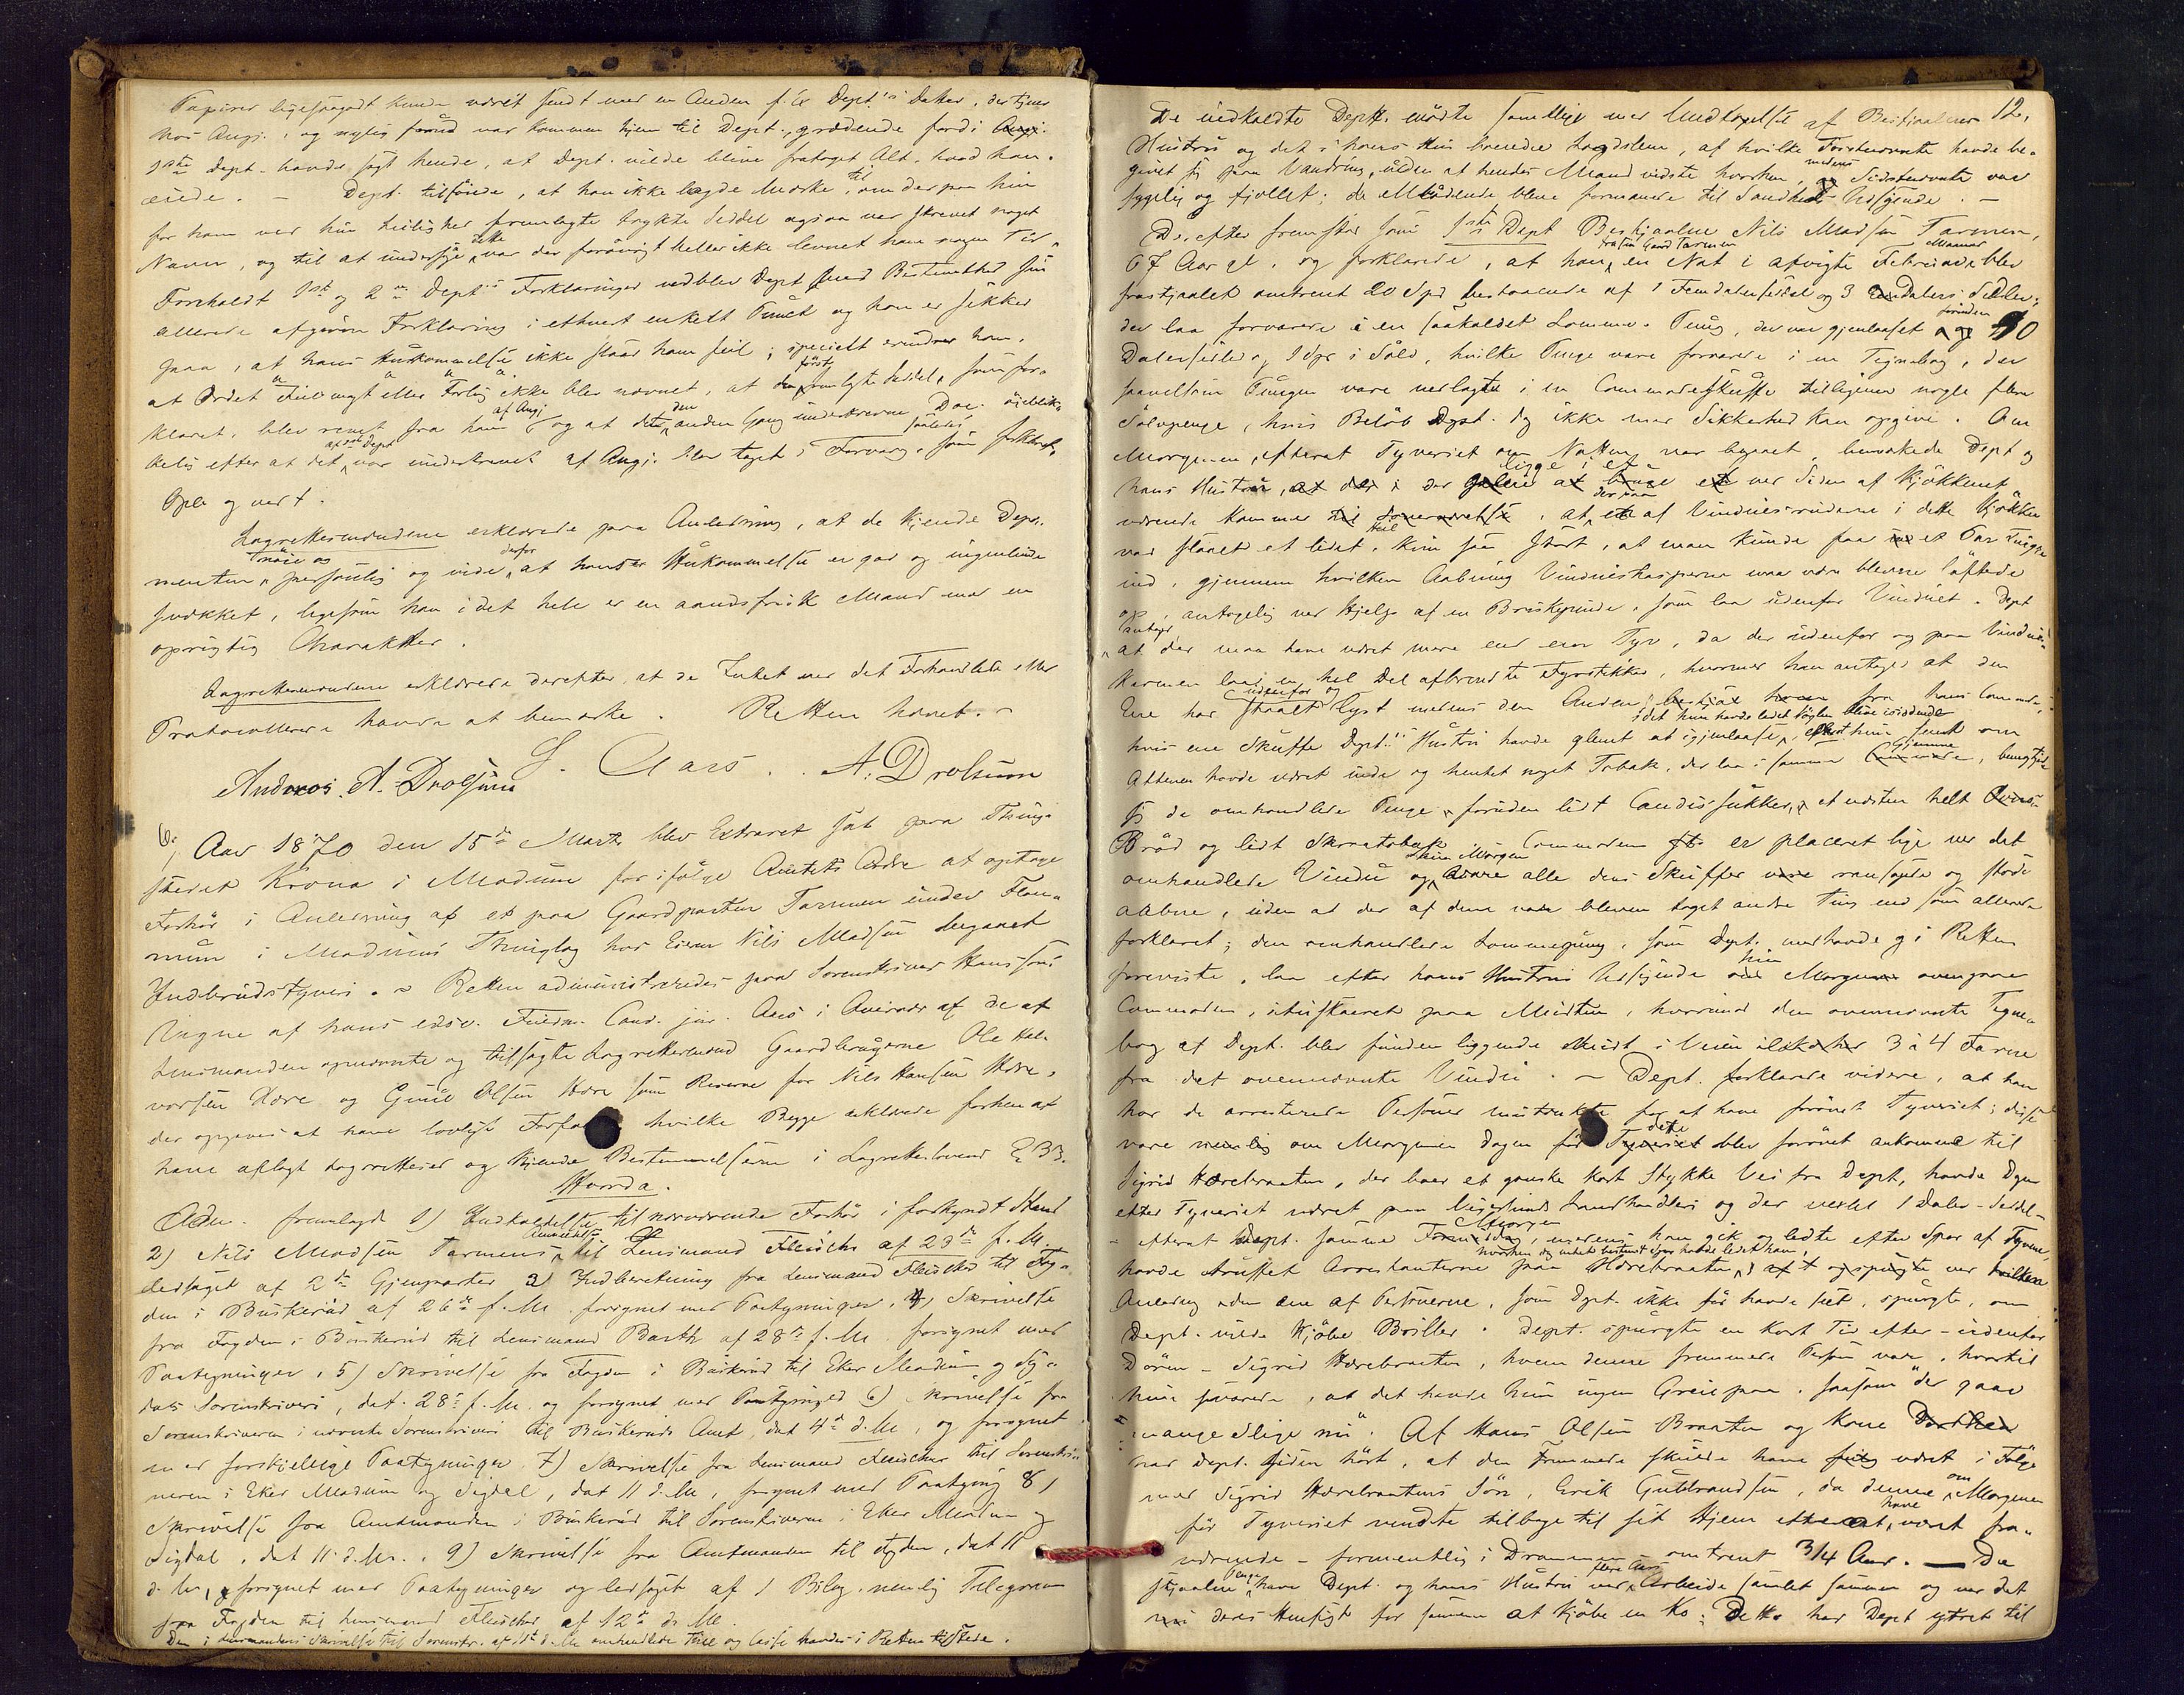 Papirer ligesaagodt kunde været sendt med en Anden f. Ex Dept.s Datter, der tjener
hos Angj., og nylig forud var kommen hjem til Dept., grædende fordi
1ste Dept. havde sagt hende, at Dept. vilde blive frataget Alt, hvad han
eiede. – Dept. tilføiede, at han ikke lagde Mærke til, om der paa hin
for ham ved hin Leilighed fremlagte trykte Seddel ogsaa var skrevet noget
Navn, og til at undersøge dette var der forøvrigt heller ikke levnet ham nogen Tid.
Foreholdt 1ste og 2den Dept.s Forklaringer vedblev Dept. med Bestemthed sin
allerede afgivne Forklaring i ethvert enkelt Punct og han er sikker
paa, at hans Hukommelse ikke slaar ham feil; specielt erindrer han,
at Ordet "Fuldmagt" eller "Forlig" ikke blev nævnet, at den først fremlagte Seddel, som for-
klaret, blev revet fra ham af Angj. og at det den anden Gang underskrevne Doc. øieblik-
kelig efter at det af Dept. var underskrevet af Angj. blev taget i Forvaring, som saaledes forklaret
Oplæst og ved t.
Lagrettesmændene erklærede paa Anledning, at de kjende Depo-
nenten nøie og personlig og vide derfor, at hans Hukommelse er god og ingenlunde
svækket, ligesom han i det hele er en aandsfrisk Mand med en
oprigtig Charakter.
Lagrettesmændene erklærede derefter, at de Intet ved det Forhandlede eller
Protocollerede havde at bemærke. Retten hævet. –
S. Aars. A. Drolsum
Andreas A. Drolsum
6. Aar 1870 den 15de Marts blev Extraret sat paa Thing-
stedet Krona i Modum for ifølge Amtets Ordre at optage
Forhør i Anledning af et paa Gaardparten Tarmen under
i Modums Thinglag hos Eieren Nils Madsen begaaet
Indbrudstyveri. – Retten administreredes paa Sorenskriver Hanssons
Vegne af hans edsv. Fuldm. Cand. jur. Aars i Overvær af de af
Lensmanden opnævnte og tilsagte Lagrettesmænd Gaardbrugerne Ole Hal-
vorsen Hære og Gunil Olsen Hære som Reserve for Nils Hansen Hære,
der opgaves at have lovligt Forfald hvilke Begge erklærede forhen at
have aflagt Lagrettesed og kjende Bestemmelserne i Lagretteslovens § 33.
Hvorda.
Adm. fremlagde 1) Indkaldelse til nærværende Forhør i forkyndt Stand
2) Nils Madsen Tarmens Anmeldelse til Lensmand Fleischer af 23de f. M.
ledsaget af 2de Gjenparter 3) Indberetning fra Lensmand Fleischer til Fog-
den i Buskerud af 26de f. M. forsynet med Paategninger, 4) Skrivelse
fra Fogden i Buskerud til Lensmand Barth af 28de f. M. forsynet med
Paategninger, 5) Skrivelse fra Fogden i Buskerud til Eker Modum og Sig-
dals Sorenskriveri, dat. 28de f. M. og forsynet med Paategning 6) Skrivelse fra
Sorenskriveren i nævnte Sorenskriveri til Buskeruds Amt, dat 4de d. M, og forsynet
med forskjellige Paategninger, 7) Skrivelse fra Lensmand Fleischer til Sorenskri-
veren i Eker Modum og Sigdal, dat 11 d. M., forsynet med Paategning 8)
Skrivelse fra Amtmanden i Buskerud til Sorenskriveren i Eker Modum og
Sigdal, dat 11 d. M., 9) Skrivelse fra Amtmanden til Fogden, dat 11
d. M., forsynet med Paategninger og ledsaget af 1 Bilag, nemlig Telegram
fra Fogden til Lensmand Fleischer af 12te d. M.
Den i Lensmandens Skrivelse til Sorenskr. af 11te d. M. omhandlede og havdes i Retten tilstede.
12.
De indkaldte Depts. mødte samtlige med Undtagelse af Bestjaalnes
Hustru og det i hans Huus boende Lægdslem, af hvilke Førstnævnte havde be-
givet sig paa Vandring, uden at hendes Mand vidste hvorhen, medens Sidstnævnte var
sygelig og fjollet; de Mødende bleve formanede til Sandheds Udsigende. –
Derefter fremstod som 1ste Dept Bestjaalne Nils Madsen Tarmen,
67 Aar gl. og forklarede, at han fra sin Gaard Tarmen en Nat i afvigte Februar Maaned blev
frastjaalet omtrent 20 Spd bestaaende af 1 Femdalerseddel og 3 Dalers Sedler,
der laa forvarede i en saakaldet Lomme-Pung, der var gjenlaaset, foruden 10
Dalersedler og 1 Spd i Sølv, hvilke Penge vare forvarede i en Tegnebog, der
saavelsom Pungen vare nedlagte i en Commodeskuffe tilligemed nogle flere
Sølvpenge, hvis Beløb Dept. dog ikke med Sikkerhed kan opgive. Om
Morgenen, efterat Tyveriet om Natten var begaaet, bemærkede Dept og
hans Hustru, at der i der ligge i et ved Siden af Kjøkkenet
værende Kammer, at der paa et af Vinduesruderne i dette Kjøkken
var slaaet et lidet Hul, kun saa stort, at man kunde faa et Par Fingre
ind, gjennem hvilken Aabning Vindueshasperne maa være blevne løftede
op, antagelig ved Hjelp af en Brækpinde, som laa udenfor Vinduet. Dept
antager at der maa have været mere end een Tyv, da der udenfor og paa Vindues-
karmen laa en hel Del afbrændte Fyrstikker, hvormed han antager at den
Ene har udenfor og staaet lyst medens den Anden bestjal fra hans Commode,
hvis ene Skuffe Dept.s Hustru havde glemt at igjenlaase, idet hun havde ladet Nøglen blive isiddende, efterat hun sent om
Aftenen havde været inde og hentet noget Tobak, der laa i samme Gjemme,
de omhandlede Penge foruden lidt Candissukker, et næsten helt
Brød og lidt Skraatobak. Commoden er placeret lige ved det
omhandlede Vindu og denne Morgen vare alle dens Skuffer ransagede og stode
aabne, uden at der af dem var bleven taget andre Ting end som allerede
forklaret; den omhandlede Lommepung, som Dept. medhavde og i Retten
foreviste, laa efter hans Hustrus Udsigende hin Morgen ovenpaa
Commoden, itusskaaret paa Midten, hvorimod den ovennævnte Tegne-
bog af Dept. blev funden liggende midt i Veien 3 à 4 Favne
fra det ovennævnte Vindu. – Dept. forklarede videre, at han
har de arresterede Personer mistænkte for at have forøvet Tyveriet; disse
vare nemlig om Morgenen Dagen før dette blev forøvet ankomne til
Sigrid Hærebraaten, der boer et ganske kort Stykke Vei fra Dept., havde Dagen
efter Tyveriet været paa Landhandleri og der vexlet 1 Daler-Seddel –
– efterat Dept. samme Morgen, medens han gik og ledte efter Spor af Tyvene,
havde truffet Arrestanterne paa Hærebraaten, hvorhen dog intet bestemt Spor havde ledet ham, ved hvilken
Anledning den ene af Personerne, som Dept. ikke før havde seet, spurgte, om
Dept. vilde kjøbe Briller. Dept. spurgte en kort Tid efter – udenfor
Døren – Sigrid Hærebraaten, hvem denne fremmede Person var, hvortil
hun svarede, at det havde hun ingen Greie paa, saasom "der gaar
mange slige nu". Af Hans Olsen Braaten og Kone
har Dept. siden hørt, at den Fremmede skulde have været i Følge
med Sigrid Hærebraatens Søn, Erik Gulbrandsen, da denne om Morgenen
før Tyveriet vendte tilbage til sit Hjem efter at have været fra-
værende – formentlig i Drammen – omtrent 3/4 Aar. – De
stjaalne Penge have Dept. og hans Hustru ved flere Aars Arbeide samlet sammen og var det
deres Hensigt for samme at kjøbe en Ko; Dette har Dept. ytret til